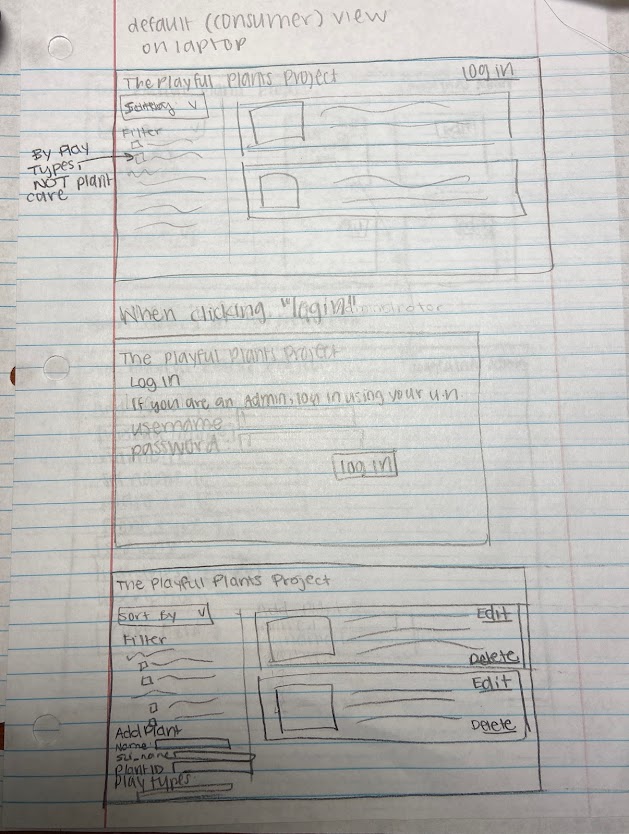 default (consumer) view
on laptop
The Playful Plants Project
log in
Sort By V
Filter
By Play
Types,
NOT plant
care
When clicking "login"
The Playful Plants Project
Log in
If you are an Admin, log in using your u.n
username
password
log in
The Playful Plants Project
Sort By V
Filter
Edit
Delete
Edit
Delete
Add Plant
Name
Sci_name
Plant ID
Play types